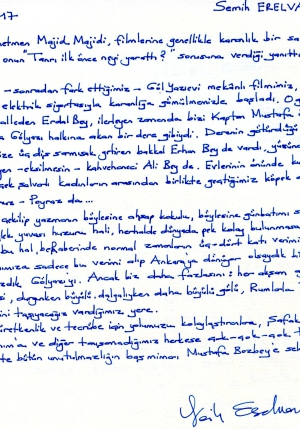 17 Semih ERELVA
netmen Majid Majidi, filmlerine genellikle karanlık bir sa
onun "Tanrı ilk önce neyi yarattı?" sorusuna verdiği yanıtta
- sonradan fark ettiğimiz - Göl Yazıevi mekânlı filmimiz,
elektrik sigortasıyla karanlığa gömülmemizle başladı. O
alleden Erdal Bey, ilerleyen zamanda bizi Kaptan Mustafa
Gölyazı halkına akan bir dere gibiydi. Derenin götürdüğü
ze üç diş sarımsak getiren bakkal Erhan Bey de vardı, yüzün
en - eksilmesin - kahvehaneci Ali Bey de. Evlerinin önünde
şalvarlı kadınların arasından birlikte geçtiğimiz köpek
- Poyraz da ...
çekilip yazmanın böylesine ahşap kokulu, böylesine günbatımı
lek yuvası huzuru hali, herhalde dünyada pek kolay bulunmasa
bu hal, beraberinde normal zamanların üç-dört katı verimi
ımıza sadece bu verimi alıp Ankara'ya dönüyor olsaydık bi
zdik Gölyazı'yı. Ancak biz daha fazlasını: her akşam
si, durgunken büyülü, dalgalıyken daha büyülü gölü, Rumlar'a
ini taşıyacağız vardığımız yere.
üretkenlik ve tecrübe için yolumuzu kolaylaştıranlara, Şafak
ım'a ve diğer tanışamadığımız herkese çok-çok-çok
te bütün unutulmazlığın baş mimarı Mustafa Bozbey'e